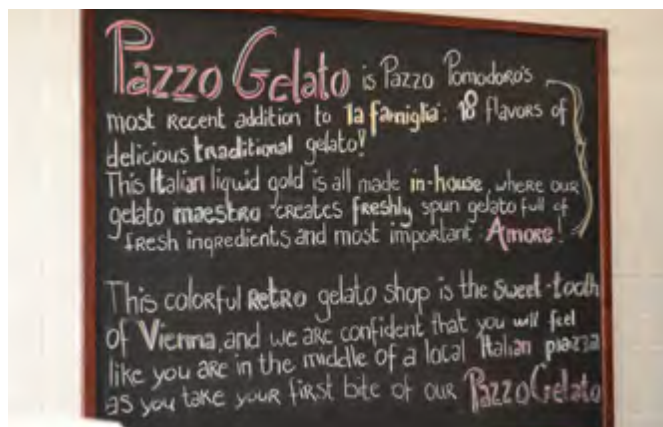 Pazzo Gelato is Pazzo Pomodoro's
most recent addition to la famiglia: 18 flavors of
delicious traditional gelato!
This Italian liquid gold is all made in-house, where our
gelato maestro creates freshly spun gelato full of
fresh ingredients and most important Amore!
This colorful retro gelato shop is the sweet-tooth
of Vienna, and we are confident that you will feel
like you are in the middle of a local Italian piazza
as you take your first bite of our Pazzo Gelato